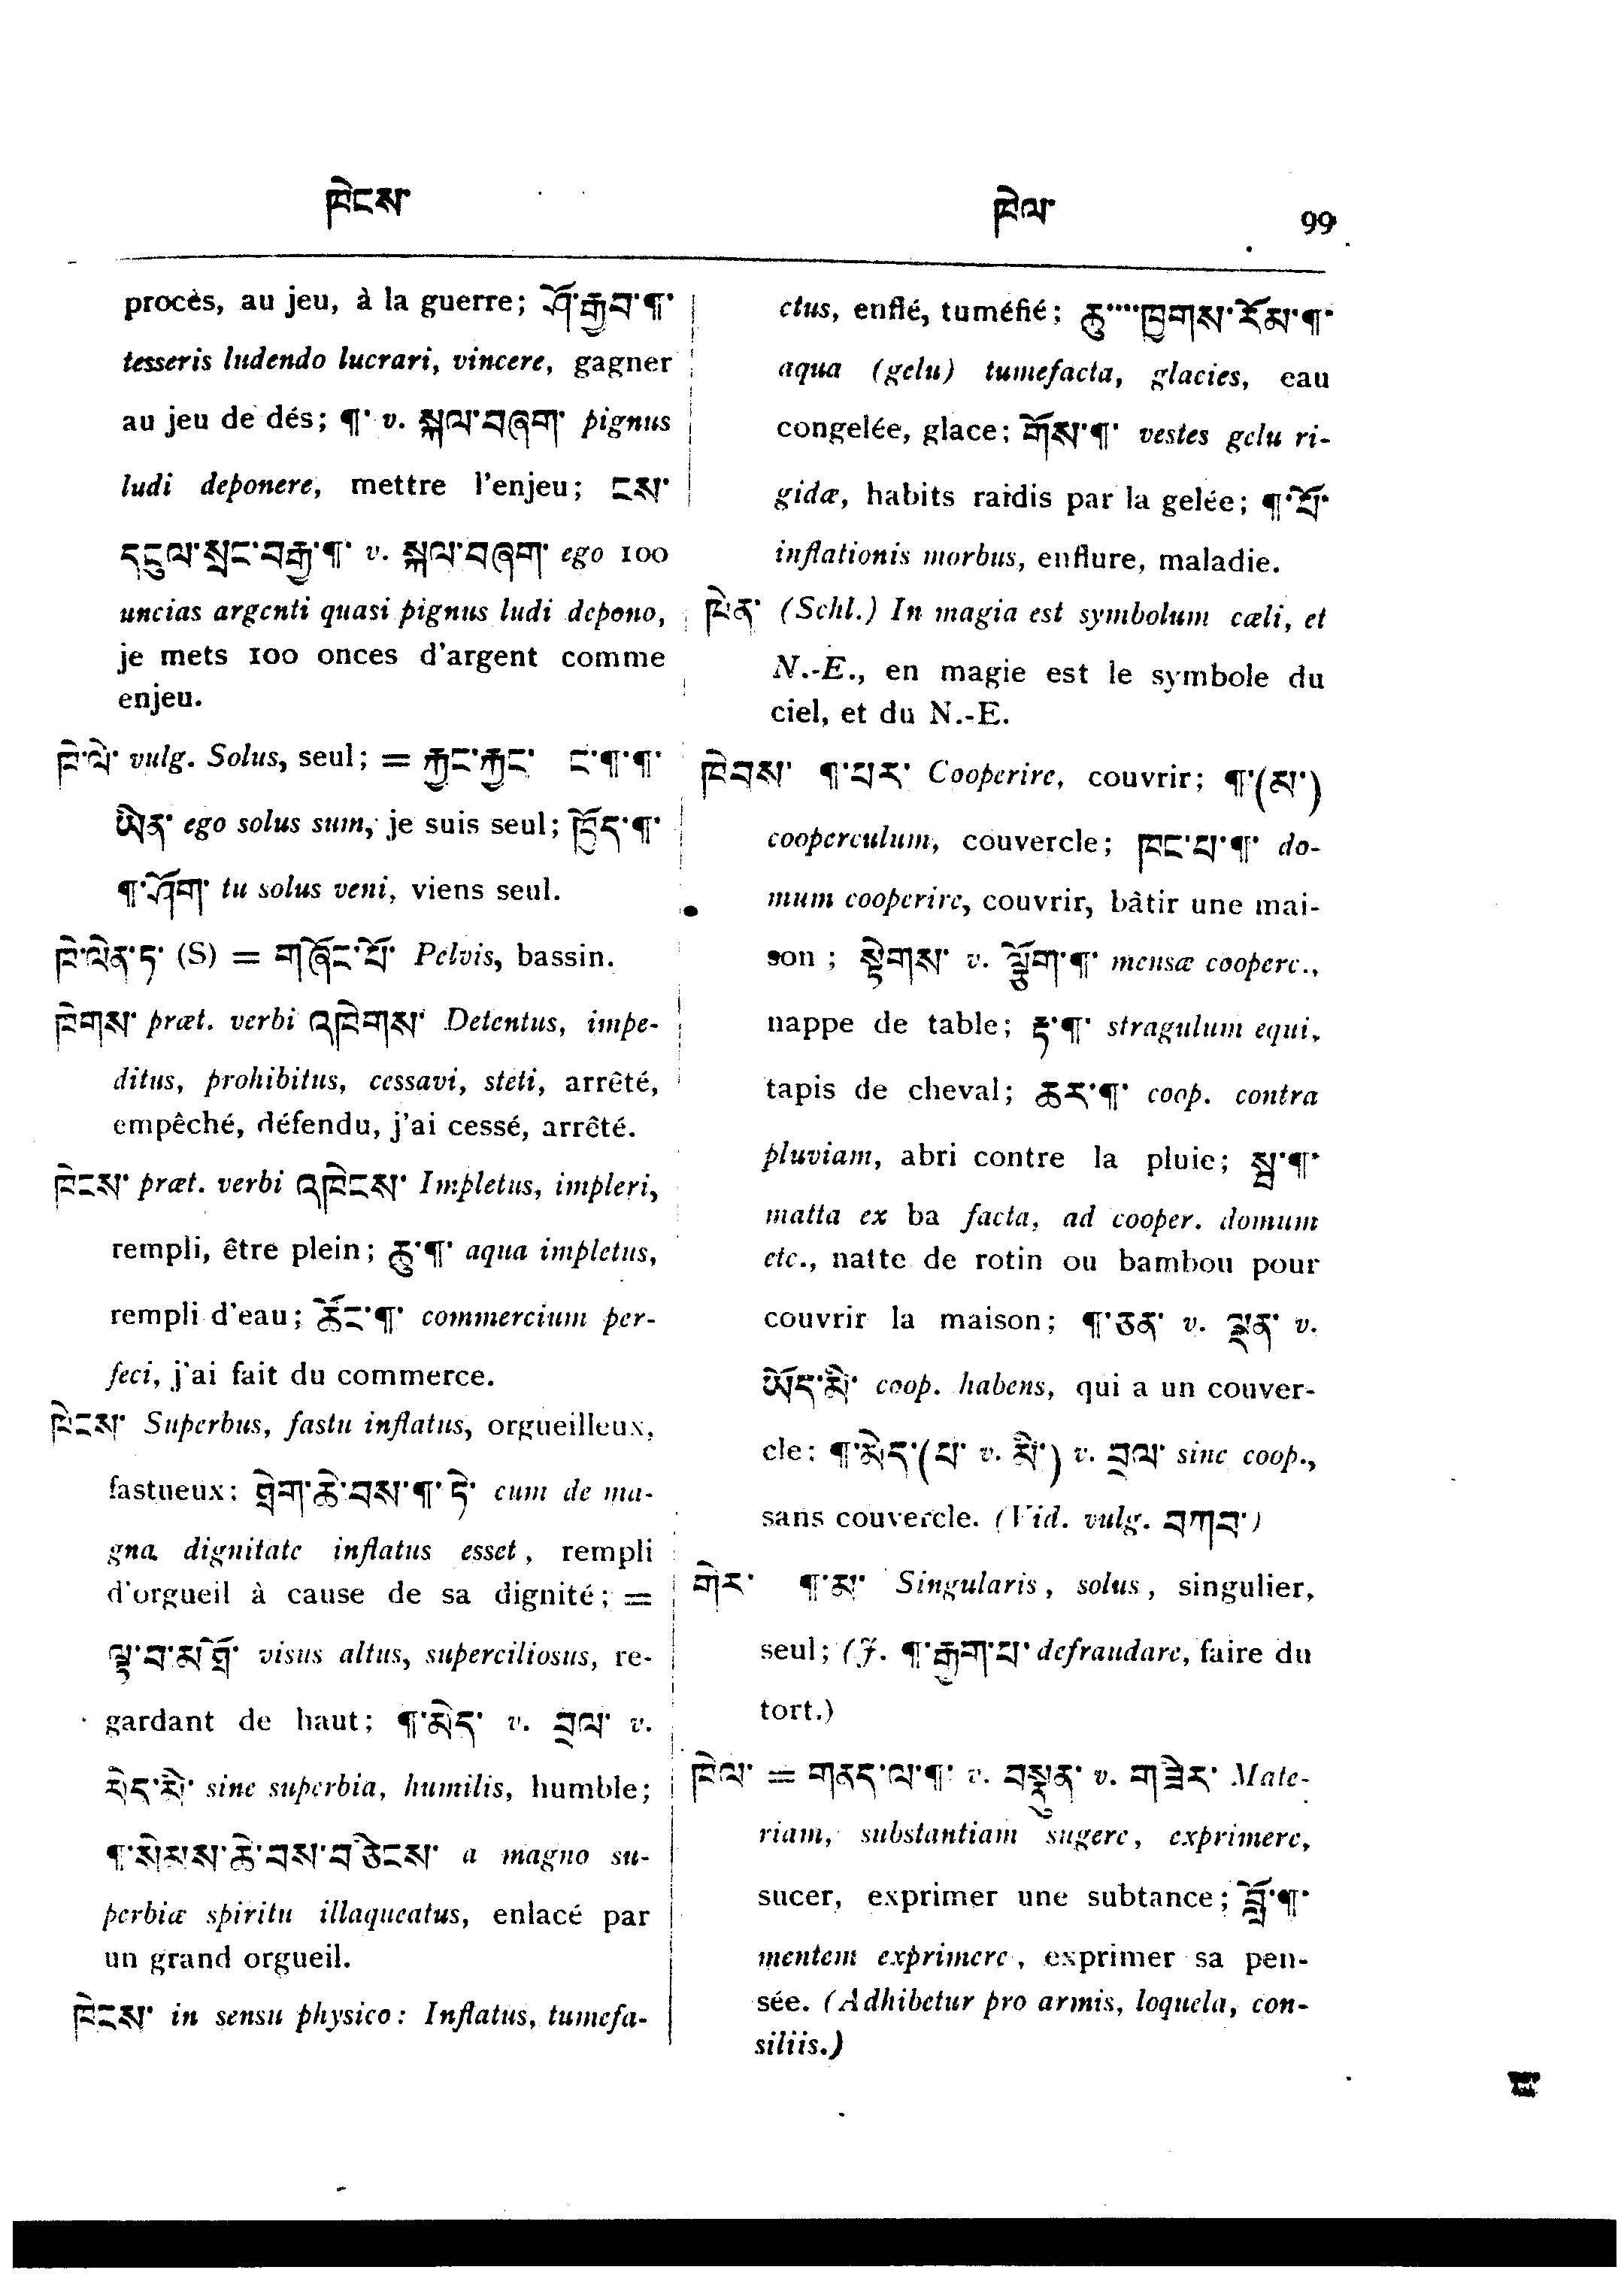 ཁེངས་
ཁེལ་ 99
procès, au jeu, à la guerre; ཤོ་རྒྱབ་¶་
tesseris ludendo lucrari, vincere, gagner
au jeu de dés; ¶་ v. སྐལ་བཞག་ pignus
ludi deponere, mettre l'enjeu; ངས་
དངུལ་སྲང་བརྒྱ་¶་ v. སྐལ་བཞག་ ego 100
uncias argenti quasi pignus ludi depono,
je mets 100 onces d'argent comme
enjeu.
ཁེ་ལེ་ vulg. Solus, seul; = རྐྱང་རྐྱང་ ང་¶་¶་
ཡིན་ ego solus sum, je suis seul; ཁྱོད་¶་
¶་ཤོག་ tu solus veni, viens seul.
ཁེ་ལེན་ཏ་ (S) = གཞོང་པོ་ Pelvis, bassin.
ཁེགས་ præt. verbi འཁེགས་ Detentus, impe-
ditus, prohibitus, cessavi, steti, arrêté,
empêché, défendu, j'ai cessé, arrêté.
ཁེངས་ præt. verbi འཁེངས་ Impletus, impleri,
rempli, être plein; ཆུ་¶་ aqua impletus,
rempli d'eau; ཚོང་¶་ commercium per-
feci, j'ai fait du commerce.
ཁེངས་ Superbus, fastu inflatus, orgueilleux,
fastueux; ཐེག་ཆེ་བས་¶་ཏེ་ cum de ma-
gna dignitate inflatus esset, rempli
d'orgueil à cause de sa dignité; =
ལྟ་བ་མཐོ་ visus altus, superciliosus, re-
gardant de haut; ¶་མེད་ v. བྲལ་ v.
མེད་མི་ sine superbia, humilis, humble;
¶་སེམས་ཆེ་བས་བཅིངས་ a magno su-
perbiæ spiritu illaqueatus, enlacé par
un grand orgueil.
ཁེངས་ in sensu physico: Inflatus, tumefa-
ctus, enflé, tuméfié; ཆུ་....ཁྱགས་རོམ་¶་
aqua (gelu) tumefacta, glacies, eau
congelée, glace; གོས་¶་ vestes gelu ri-
gidæ, habits raidis par la gelée; ¶་པོ་
inflationis morbus, enflure, maladie.
ཁེན་ (Schl.) In magia est symbolum cæli, et
N.-E., en magie est le symbole du
ciel, et du N.-E.
ཁེབས་ ¶་པར་ Cooperire, couvrir; ¶་(མ་)
cooperculum, couvercle; ཁང་པ་¶་ do-
mum cooperire, couvrir, bâtir une mai-
son; སྟེགས་ v. ལྕོག་¶་ mensæ cooperc.,
nappe de table; རྟ་¶་ stragulum equi,
tapis de cheval; ཆར་¶་ coop. contra
pluviam, abri contre la pluie; སྦ་¶་
matta ex ba facta, ad cooper. domum
etc., natte de rotin ou bambou pour
couvrir la maison; ¶་ཅན་ v. ལྡན་ v.
ཡོད་མི་ coop. habens, qui a un couver-
cle; ¶་མེད་(པ་ v. མི་) v. བྲལ་ sine coop.,
sans couvercle. (Vid. vulg. བཀབ་)
ཁེར་ ¶་མ་ Singularis, solus, singulier,
seul; (J. ¶་རྒྱག་པ་ defraudare, faire du
tort.)
ཁེལ་ = གནད་ལ་¶་ v. བསྣུན་ v. གཟེར་ Mate-
riam, substantiam sugere, exprimere,
sucer, exprimer une subtance; བློ་¶་
mentem exprimere, exprimer sa pen-
sée. (Adhibetur pro armis, loquela, con-
siliis.)